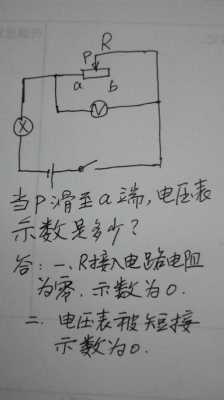 R
P
a b
V
X
当P滑至a端，电压表
示数是多少？
答：一、R接入电路电阻
为零，示数为0.
二、电压表被短接
示数为0.